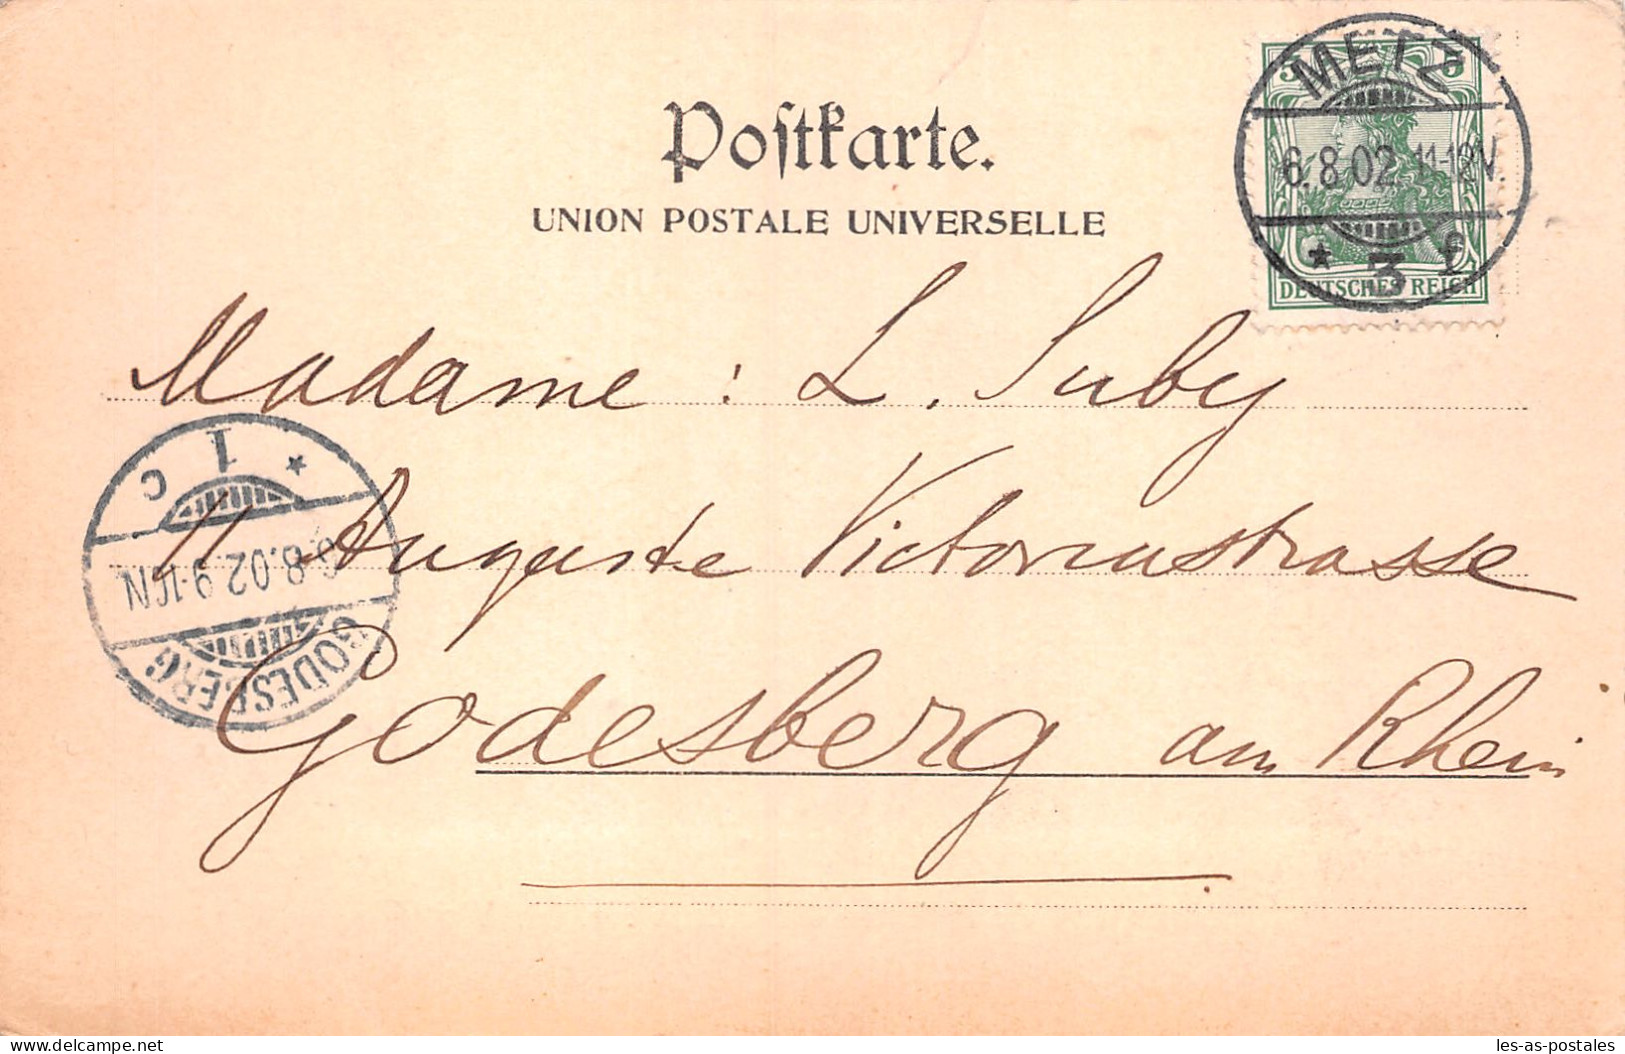 Poſtkarte.
UNION POSTALE UNIVERSELLE
5 5
METZ
6.8.02.11-12V.
* 3 f
DEUTSCHES REICH
Madame : L. Suby
11 Auguste Victoriastrasse
Godesberg am Rhein
GODESBERG
6.8.02.9-10N
* 1 c
delcampe.net
les-as-postales